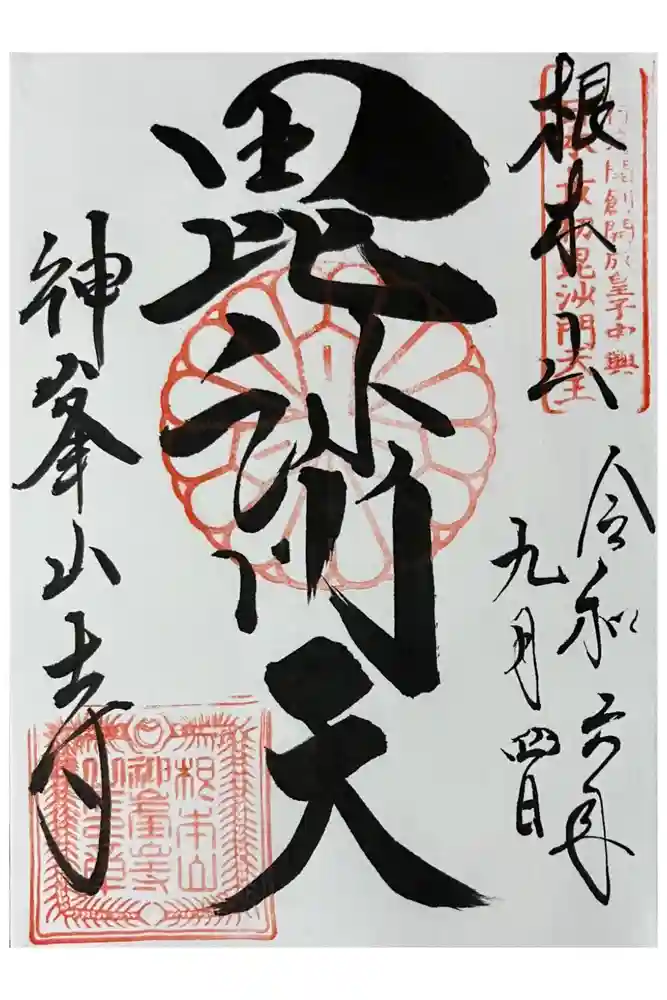 根本山
開創開成皇子中興
最初毘沙門天王
令和六年
九月四日
毘沙門天
神峯山寺
根本山
神峯山寺